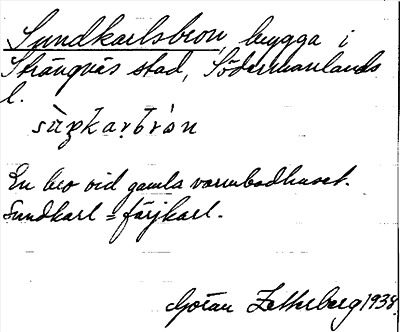 Sundkarlsbron, brygga i
Strängnäs stad, Södermanlands
l.
En bro vid gamla varmbadhuset.
Sundkarl = färjkarl.
Göran Zetherberg 1938.